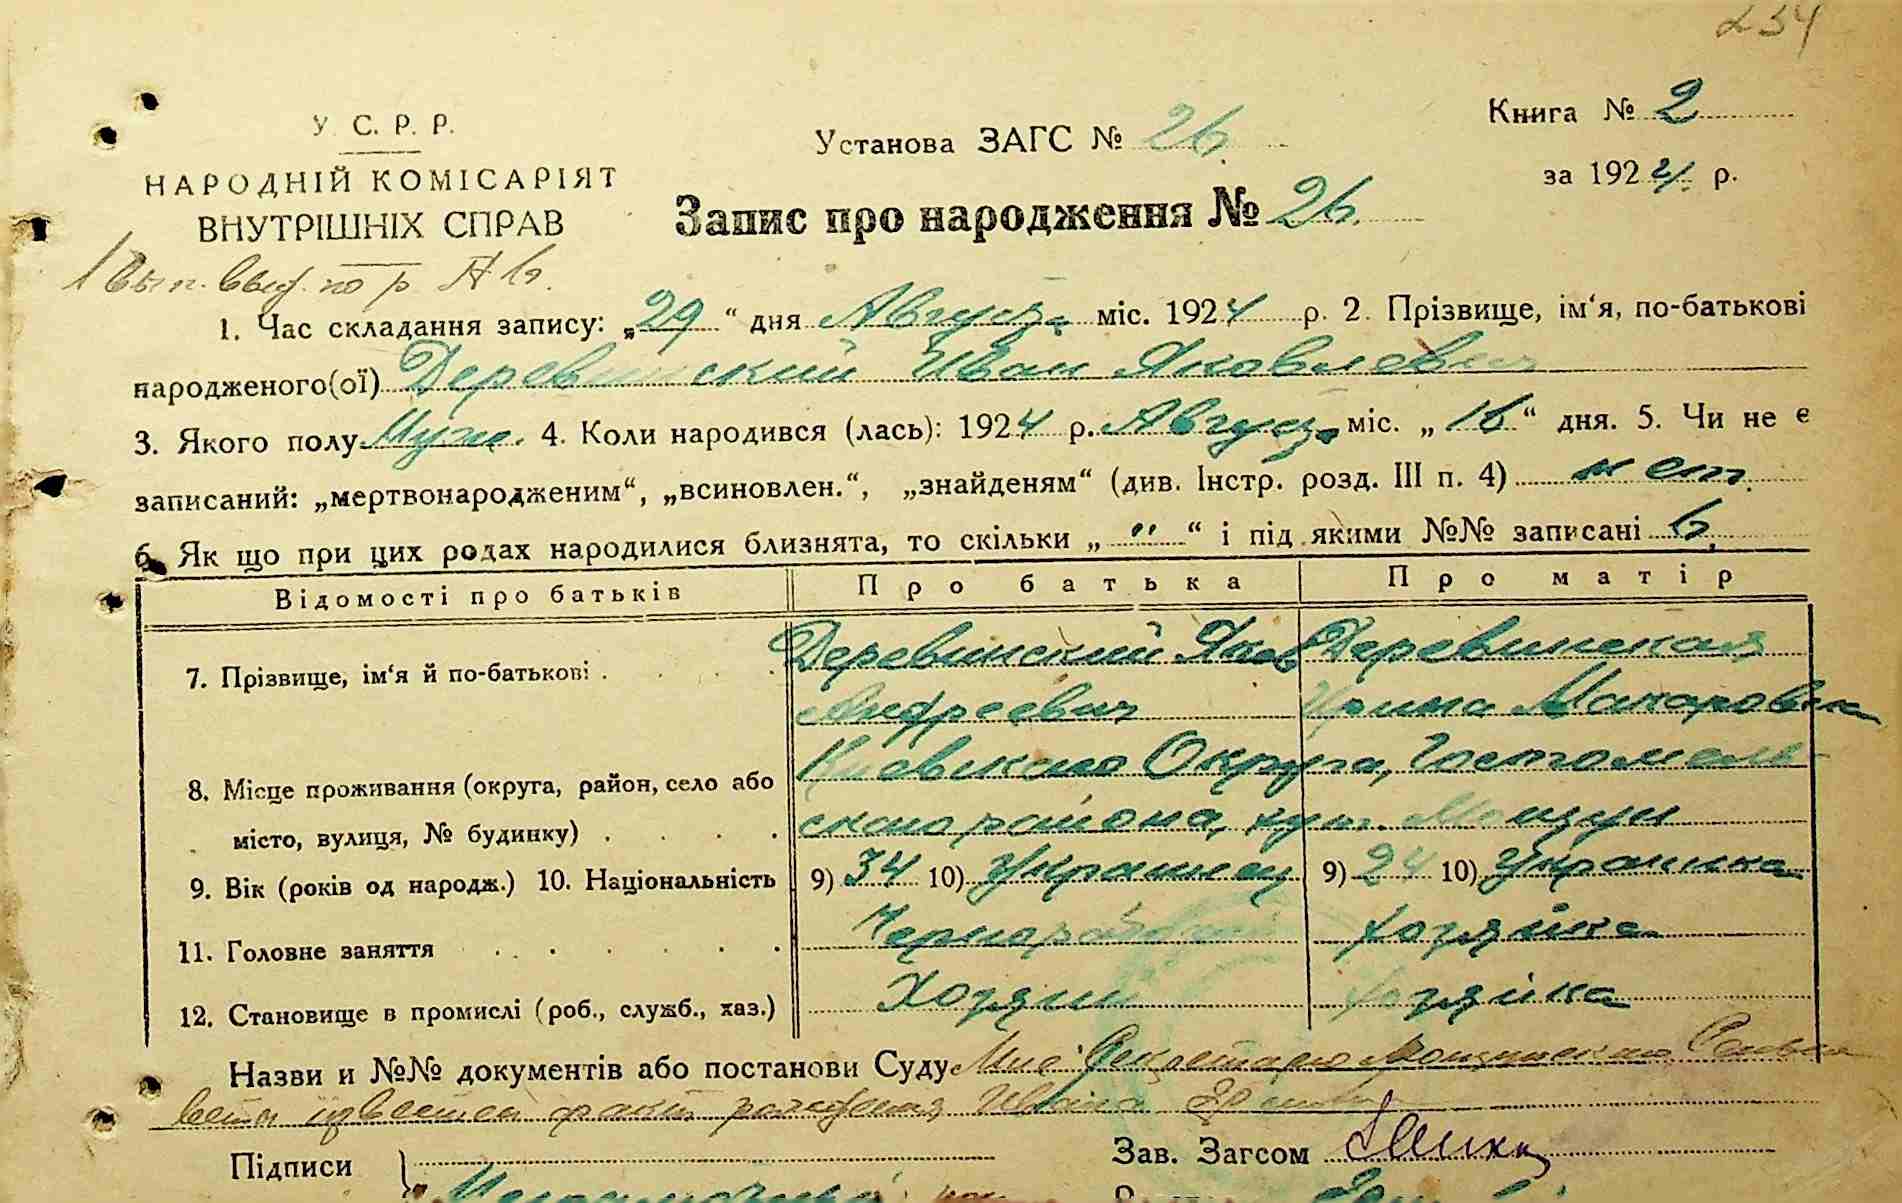 234
У. С. Р. Р.
НАРОДНІЙ КОМІСАРІЯТ
ВНУТРІШНІХ СПРАВ
Установа ЗАГС № 26.
Книга № 2
за 1924. р.
Запис про народження № 26.
1. Час складання запису: „29“ дня Августа міс. 1924 р. 2. Прізвище, ім‘я, по-батькові
народженого(ої) Деревинский Иван Яковлевич
3. Якого полу Муж. 4. Коли народився (лась): 1924 р. Августа міс. „16“ дня. 5. Чи не є
записаний: „мертвонародженим“, „всиновлен.“, „знайденям“ (див. Інстр. розд. III п. 4) нет.
6. Як що при цих родах народилися близнята, то скільки „ " “ і під якими №№ записані
Відомості про батьків Про батька Про матір
7. Прізвище, ім‘я й по-батькові . . . . Деревинский Яков Деревинская
Андреевич Ирина Макаровна
Киевского Округа, Гостомель-
8. Місце проживання (округа, район, село або
ского района, хут. Мощун
місто, вулиця, № будинку) . . . .
9. Вік (років од народж.) 10. Національність 9) 34 10) Украинец 9) 24 10) Украинка
11. Головне заняття . . . . . . Чернорабочий хозяйка
12. Становище в промислі (роб., служб., хаз.) Хозяин хозяйка
Назви и №№ документів або постанови Суду Мне Секретарю Мощунского
известен факт рождения Ивана
Підписи
Зав. Загсом